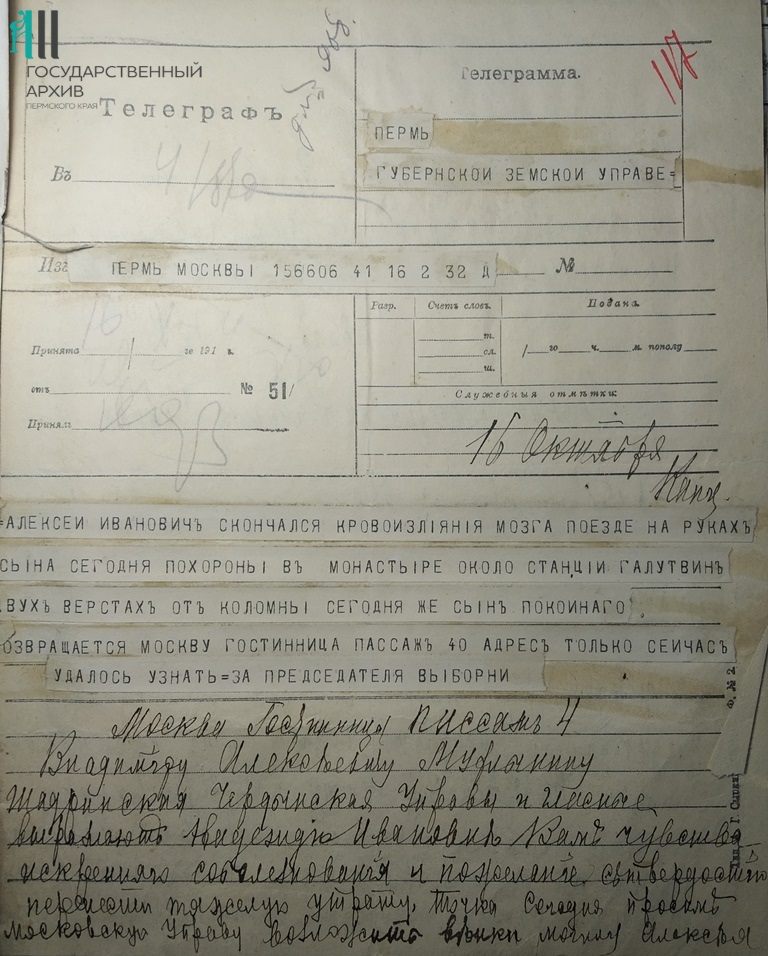 ГОСУДАРСТВЕННЫЙ
АРХИВ
ПЕРМСКОГО КРАЯ
Телеграфъ
Телеграмма.
117
ПЕРМЬ
Въ
ГУБЕРНСКОИ ЗЕМСКОИ УПРАВЕ=
Изъ ПЕРМЬ МОСКВЫ 156606 41 16 2 32 Д №
Разр. Счетъ словъ. Подана.
т.
Принята го 191 г.
сл. го ч. м. пополу
ш.
отъ № 51/
Служебныя отмѣтки
Принялъ
16 Октября
=АЛЕКСЕИ ИВАНОВИЧЪ СКОНЧАЛСЯ КРОВОИЗЛІЯНІЯ МОЗГА ПОЕЗДЕ НА РУКАХЪ
СЫНА СЕГОДНЯ ПОХОРОНЫ ВЪ МОНАСТЫРЕ ОКОЛО СТАНЦІИ ГАЛУТВИНЪ
ДВУХЪ ВЕРСТАХЪ ОТЪ КОЛОМНЫ СЕГОДНЯ ЖЕ СЫНЪ ПОКОИНАГО
ОЗВРАЩАЕТСЯ МОСКВУ ГОСТИННИЦА ПАССАЖЪ 40 АДРЕСЪ ТОЛЬКО СЕИЧАСЪ
УДАЛОСЬ УЗНАТЬ=ЗА ПРЕДСЕДАТЕЛЯ ВЫБОРНИ
Ф. № 2
Москва Гостинница Пассажъ 4
Владиміру Алексѣевичу
Шадринская Чердынская Управы и гласные
выражаютъ Ивановнѣ Вамъ чувства
искренняго соболезнованія и пожеланіе съ твердостію
перенести тяжелую утрату. Точка Сегодня просимъ
Московскую Управу возложить вѣнки могилу Алексѣя